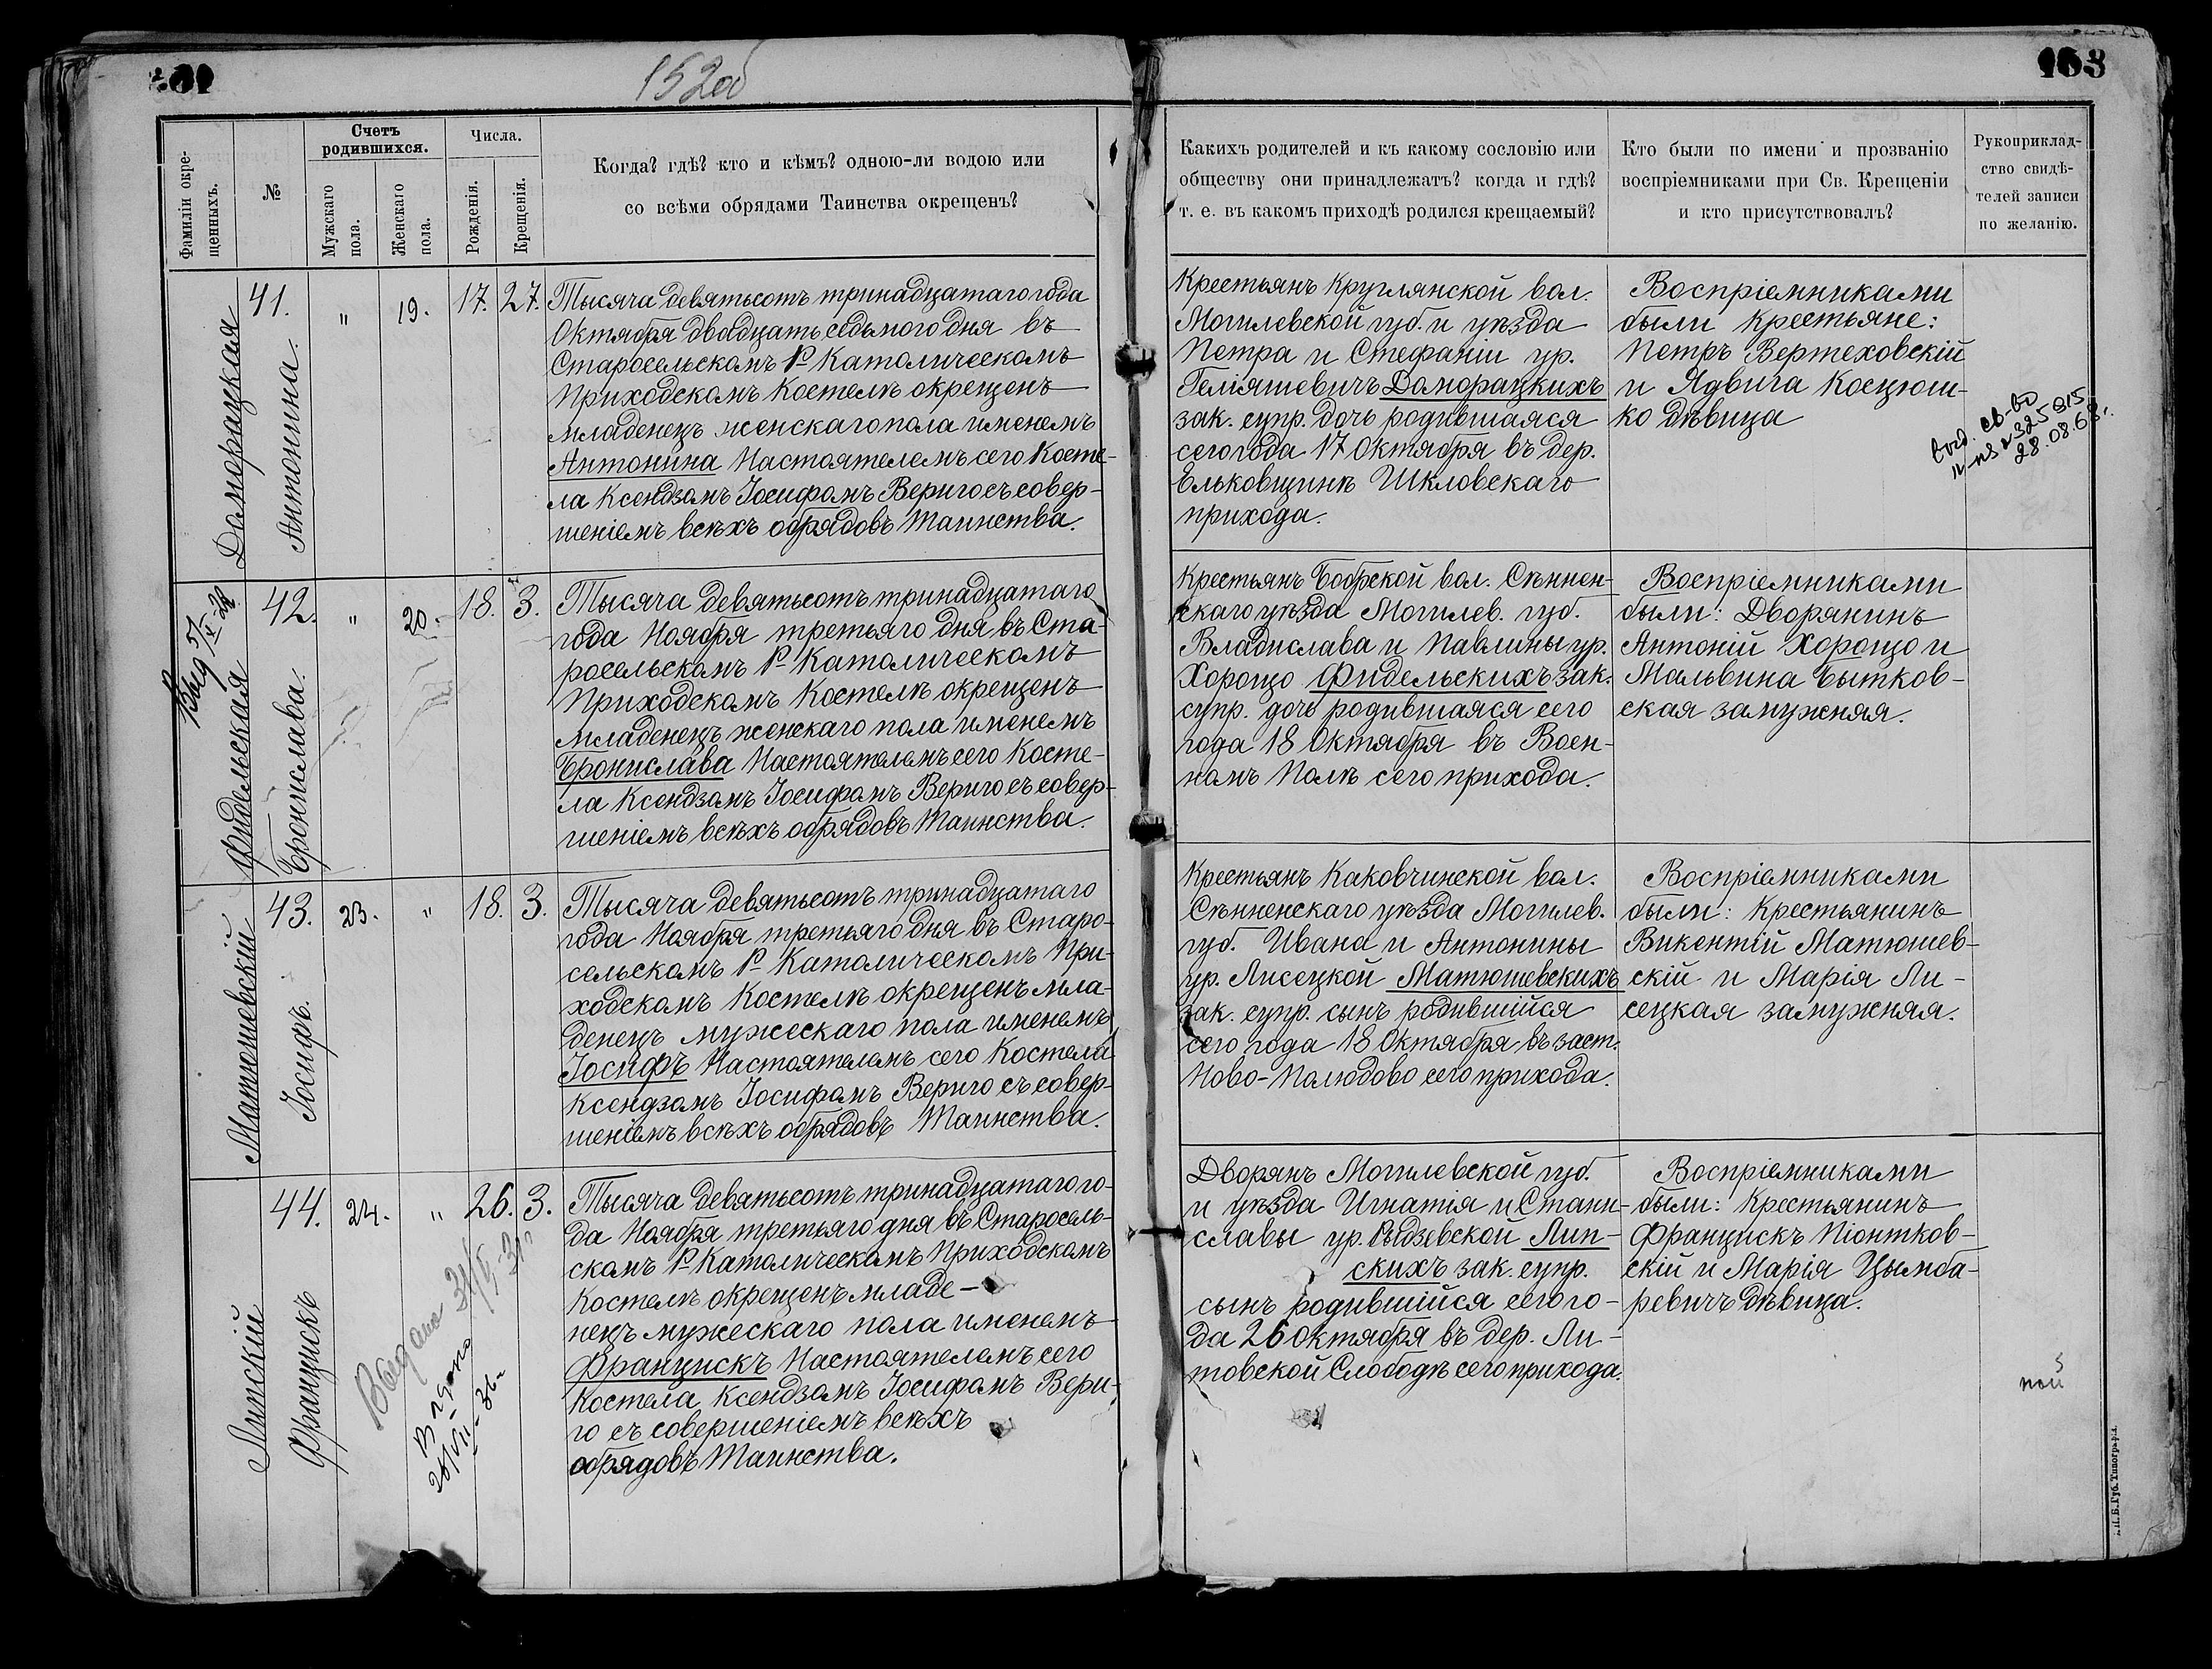 152об
Фамиліи окре-
щенныхъ.
№
Счетъ
родившихся.
Мужскаго
пола.
Женскаго
пола.
Числа.
Рожденія.
Крещенія.
Когда? гдѣ? кто и кѣмъ? одною-ли водою или
со всѣми обрядами Таинства окрещенъ?
Какихъ родителей и къ какому сословію или
обществу они принадлежатъ? когда и гдѣ?
т. е. въ какомъ приходѣ родился крещаемый?
Кто были по имени и прозванію
воспріемниками при Св. Крещеніи
и кто присутствовалъ?
Рукоприклад-
ство свидѣ-
телей записи
по желанію.
Доморацкая
41.
Антонина.
"
19.
17.
27.
Тысяча девятьсотъ тринадцатаго года
Октября двадцать седьмого дня въ
Старосельскомъ Р. Католическомъ
Приходскомъ Костелѣ окрещенъ
младенецъ женскаго пола именемъ
Антонина Настоятелемъ сего Косте-
ла Ксендзомъ Іосифомъ Вериго съ совер-
шеніемъ всѣхъ обрядовъ Таинства.
Крестьянъ Круглянской вол.
Могилевской губ. и уѣзда
Петра и Стефаніи ур.
Геліяшевичъ Доморацкихъ
зак. супр. дочь родившаяся
сего года 17 Октября въ дер.
Ельковщинѣ Шкловскаго
прихода.
Воспріемниками
были крестьяне:
Петръ Вертеховскій
и Ядвига Косцюш-
ко дѣвица
св-во
28.08.68.
Фидельская
42.
Бронислава.
"
20.
18.
3.
Тысяча девятьсотъ тринадцатаго
года Ноября третьяго дня въ Ста-
росельскомъ Р. Католическомъ
Приходскомъ Костелѣ окрещенъ
младенецъ женскаго пола именемъ
Бронислава Настоятелемъ сего Косте-
ла Ксендзомъ Іосифомъ Вериго съ совер-
шеніемъ всѣхъ обрядовъ Таинства.
Крестьянъ Бобрской вол. Сѣннен-
скаго уѣзда Могилев. губ.
Владислава и Павлины ур.
Хорощо Фидельскихъ зак.
супр. дочь родившаяся сего
года 18 Октября въ Воен-
номъ Полѣ сего прихода.
Воспріемниками
были: Дворянинъ
Антоній Хорощо и
Мальвина Бытков-
ская замужняя.
Матюшевскій
43.
Іосифъ.
23.
"
18.
3.
Тысяча девятьсотъ тринадцатаго
года Ноября третьяго дня въ Старо-
сельскомъ Р. Католическомъ При-
ходскомъ Костелѣ окрещенъ мла-
денецъ мужескаго пола именемъ
Іосифъ Настоятелемъ сего Костела
Ксендзомъ Іосифомъ Вериго съ совер-
шеніемъ всѣхъ обрядовъ Таинства.
Крестьянъ Каковчинской вол.
Сѣнненскаго уѣзда Могилев.
губ. Ивана и Антонины
ур. Лисецкой Матюшевскихъ
зак. супр. сынъ родившійся
сего года 18 Октября въ заст.
Ново-Полюдово сего прихода.
Воспріемниками
были: Крестьянинъ
Викентій Матюшев-
скій и Марія Ли-
сецкая замужняя.
Липскій
44.
Францискъ
24.
"
26.
3.
Выдано
Выдано
Тысяча девятьсотъ тринадцатаго го-
да Ноября третьяго дня въ Старосель-
скомъ Р. Католическомъ Приходскомъ
Костелѣ окрещенъ младе-
нецъ мужескаго пола именемъ
Францискъ Настоятелемъ сего
Костела Ксендзомъ Іосифомъ Вери-
го съ совершеніемъ всѣхъ
обрядовъ Таинства.
Дворянъ Могилевской губ.
и уѣзда Игнатія и Стани-
славы ур. Рыдзевской Лип-
скихъ зак. супр.
сынъ родившійся сего го-
да 26 Октября въ дер. Ли-
товской Слободѣ сего прихода.
Воспріемниками
были: Крестьянинъ
Францискъ Піонтков-
скій и Марія Цымба-
ревичъ дѣвица.